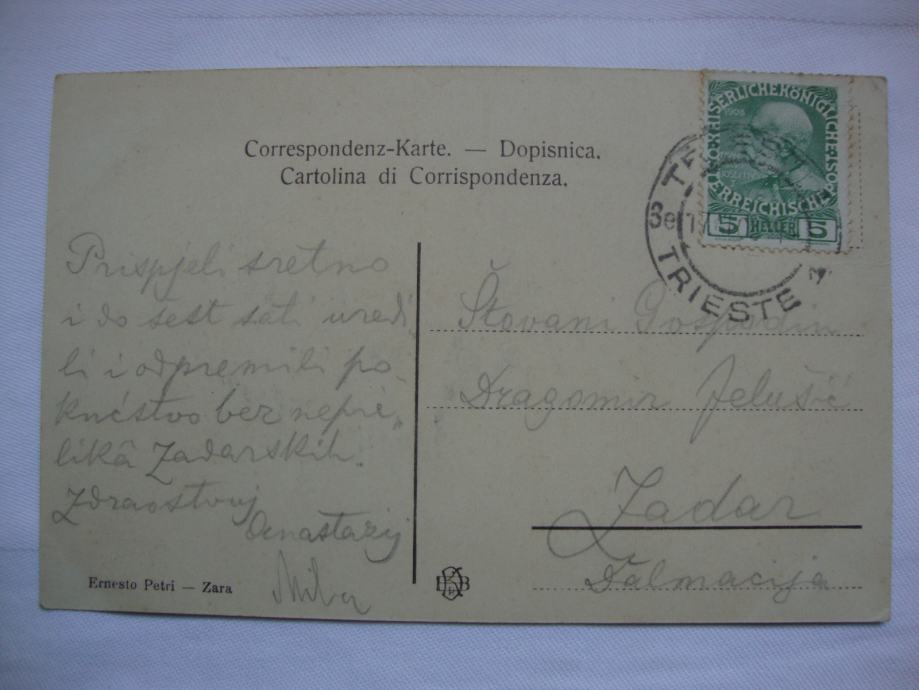 Correspondenz-Karte. — Dopisnica.
Cartolina di Corrispondenza.
KAISERLICHEKÖNIGLICHE
ÖSTERREICHISCHE POST
1908
5 HELLER 5
TRIESTE
Prispjeli sretno
i do šest sati uredi
li i odpremili po
kućstvo bez nepri„
likâ Zadarskih.
Zdravstvuj
Anastazij
Milva
Štovani Gospodin
Dragomir Jelušić
Zadar
Dalmacija
Ernesto Petri — Zara